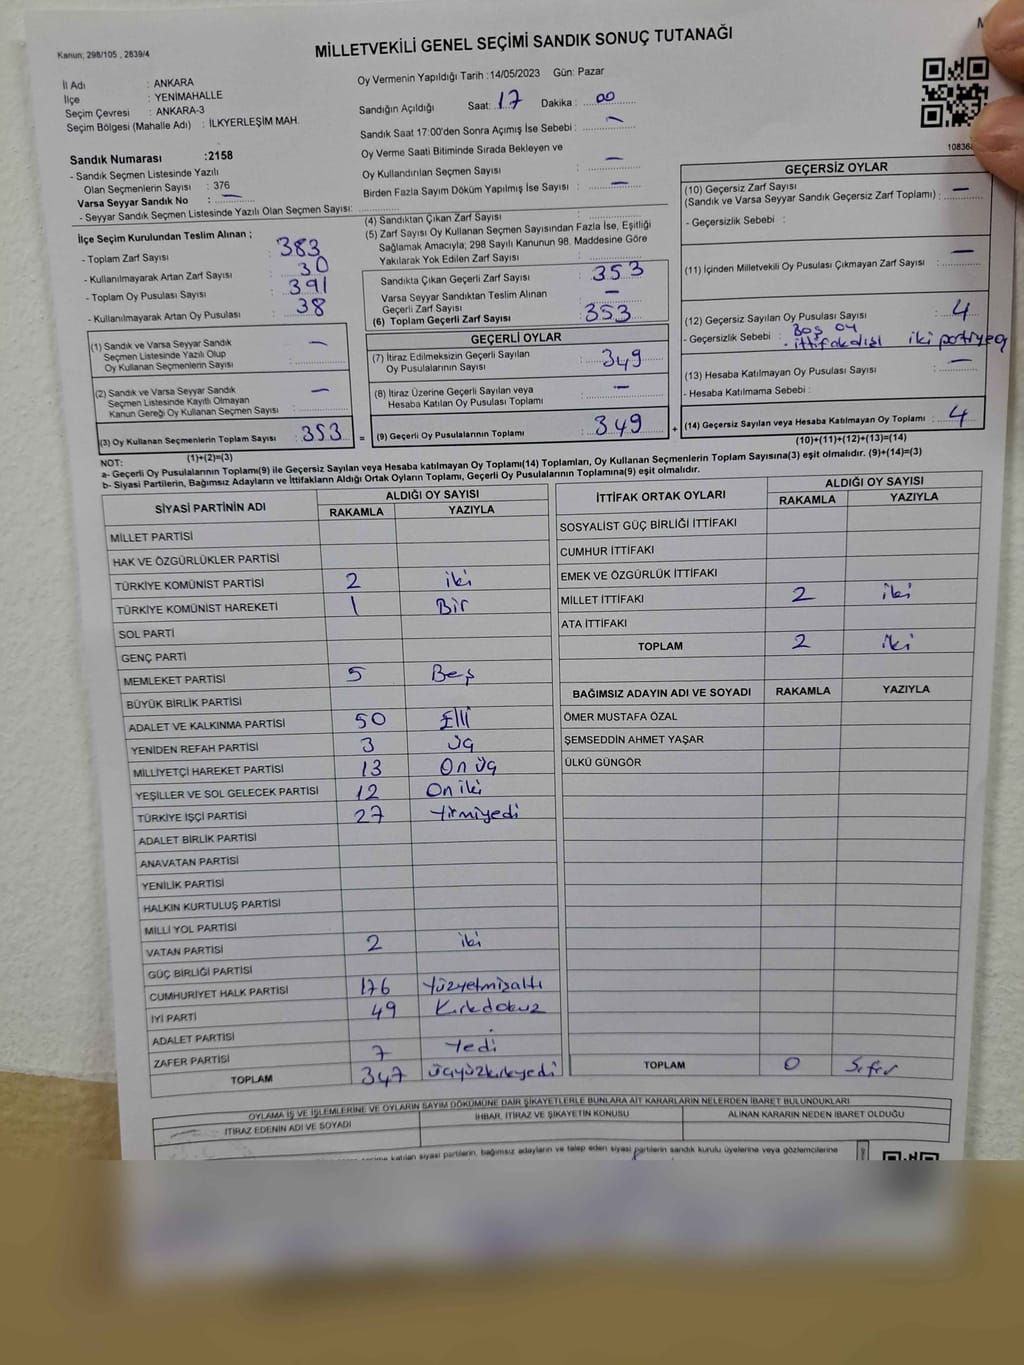 Kanun; 298/105 , 2839/4
MİLLETVEKİLİ GENEL SEÇİMİ SANDIK SONUÇ TUTANAĞI
İl Adı : ANKARA
İlçe : YENİMAHALLE
Seçim Çevresi : ANKARA-3
Seçim Bölgesi (Mahalle Adı) : İLKYERLEŞİM MAH.
Oy Vermenin Yapıldığı Tarih :14/05/2023 Gün: Pazar
Sandığın Açıldığı Saat: 17 Dakika : 00
Sandık Saat 17:00'den Sonra Açımış İse Sebebi : —
Oy Verme Saati Bitiminde Sırada Bekleyen ve
Oy Kullandırılan Seçmen Sayısı : —
Birden Fazla Sayım Döküm Yapılmış İse Sayısı : —
Sandık Numarası :2158
- Sandık Seçmen Listesinde Yazılı
Olan Seçmenlerin Sayısı : 376
Varsa Seyyar Sandık No : —
- Seyyar Sandık Seçmen Listesinde Yazılı Olan Seçmen Sayısı:
İlçe Seçim Kurulundan Teslim Alınan ;
- Toplam Zarf Sayısı : 383
- Kullanılmayarak Artan Zarf Sayısı : 30
- Toplam Oy Pusulası Sayısı : 391
- Kullanılmayarak Artan Oy Pusulası : 38
(1) Sandık ve Varsa Seyyar Sandık
Seçmen Listesinde Yazılı Olup
Oy Kullanan Seçmenlerin Sayısı : —
(2) Sandık ve Varsa Seyyar Sandık
Seçmen Listesinde Kayıtlı Olmayan
Kanun Gereği Oy Kullanan Seçmen Sayısı : —
(3) Oy Kullanan Seçmenlerin Toplam Sayısı : 353
(1)+(2)=(3)
(4) Sandıktan Çıkan Zarf Sayısı :
(5) Zarf Sayısı Oy Kullanan Seçmen Sayısından Fazla İse, Eşitliği
Sağlamak Amacıyla; 298 Sayılı Kanunun 98. Maddesine Göre
Yakılarak Yok Edilen Zarf Sayısı :
Sandıkta Çıkan Geçerli Zarf Sayısı : 353
Varsa Seyyar Sandıktan Teslim Alınan
Geçerli Zarf Sayısı : —
(6) Toplam Geçerli Zarf Sayısı : 353
GEÇERLİ OYLAR
(7) İtiraz Edilmeksizin Geçerli Sayılan
Oy Pusulasının Sayısı : 349
(8) İtiraz Üzerine Geçerli Sayılan veya
Hesaba Katılan Oy Pusulası Toplamı : —
= (9) Geçerli Oy Pusulalarının Toplamı : 349 +
GEÇERSİZ OYLAR
(10) Geçersiz Zarf Sayısı
(Sandık ve Varsa Seyyar Sandık Geçersiz Zarf Toplamı) : —
- Geçersizlik Sebebi :
(11) İçinden Milletvekili Oy Pusulası Çıkmayan Zarf Sayısı : —
(12) Geçersiz Sayılan Oy Pusulası Sayısı : 4
- Geçersizlik Sebebi : Boş oy
- ittifakdışı iki partiye
(13) Hesaba Katılmayan Oy Pusulası Sayısı : —
- Hesaba Katılmama Sebebi :
(14) Geçersiz Sayılan veya Hesaba Katılmayan Oy Toplamı : 4
(10)+(11)+(12)+(13)=(14)
NOT:
a- Geçerli Oy Pusulalarının Toplamı(9) ile Geçersiz Sayılan veya Hesaba katılmayan Oy Toplamı(14) Toplamları, Oy Kullanan Seçmenlerin Toplam Sayısına(3) eşit olmalıdır. (9)+(14)=(3)
b- Siyasi Partilerin, Bağımsız Adayların ve İttifakların Aldığı Ortak Oyların Toplamı, Geçerli Oy Pusulalarının Toplamına(9) eşit olmalıdır.
SİYASİ PARTİNİN ADI ALDIĞI OY SAYISI
RAKAMLA YAZIYLA
MİLLET PARTİSİ
HAK VE ÖZGÜRLÜKLER PARTİSİ
TÜRKİYE KOMÜNİST PARTİSİ 2 iki
TÜRKİYE KOMÜNİST HAREKETİ 1 Bir
SOL PARTİ
GENÇ PARTİ
MEMLEKET PARTİSİ 5 Beş
BÜYÜK BİRLİK PARTİSİ
ADALET VE KALKINMA PARTİSİ 50 Elli
YENİDEN REFAH PARTİSİ 3 üç
MİLLİYETÇİ HAREKET PARTİSİ 13 On üç
YEŞİLLER VE SOL GELECEK PARTİSİ 12 On iki
TÜRKİYE İŞÇİ PARTİSİ 27 Yirmiyedi
ADALET BİRLİK PARTİSİ
ANAVATAN PARTİSİ
YENİLİK PARTİSİ
HALKIN KURTULUŞ PARTİSİ
MİLLİ YOL PARTİSİ
VATAN PARTİSİ 2 iki
GÜÇ BİRLİĞİ PARTİSİ
CUMHURİYET HALK PARTİSİ 176 Yüzyetmişaltı
İYİ PARTİ 49 Kırkdokuz
ADALET PARTİSİ
ZAFER PARTİSİ 7 Yedi
TOPLAM 347 üçyüzkırkyedi
İTTİFAK ORTAK OYLARI ALDIĞI OY SAYISI
RAKAMLA YAZIYLA
SOSYALİST GÜÇ BİRLİĞİ İTTİFAKI
CUMHUR İTTİFAKI
EMEK VE ÖZGÜRLÜK İTTİFAKI
MİLLET İTTİFAKI 2 iki
ATA İTTİFAKI
TOPLAM 2 iki
BAĞIMSIZ ADAYIN ADI VE SOYADI RAKAMLA YAZIYLA
ÖMER MUSTAFA ÖZAL
ŞEMSEDDİN AHMET YAŞAR
ÜLKÜ GÜNGÖR
TOPLAM 0 Sıfır
OYLAMA İŞ VE İŞLEMLERİNE VE OYLARIN SAYIM DÖKÜMÜNE DAİR ŞİKAYETLERLE BUNLARA AİT KARARLARIN NELERDEN İBARET BULUNDUKLARI
İTİRAZ EDENİN ADI VE SOYADI İHBAR, İTİRAZ VE ŞİKAYETİN KONUSU ALINAN KARARIN NEDEN İBARET OLDUĞU
katılan siyasi partilerin, bağımsız adayların ve talep eden siyasi partilerin sandık kurulu üyelerine veya gözlemcilerine